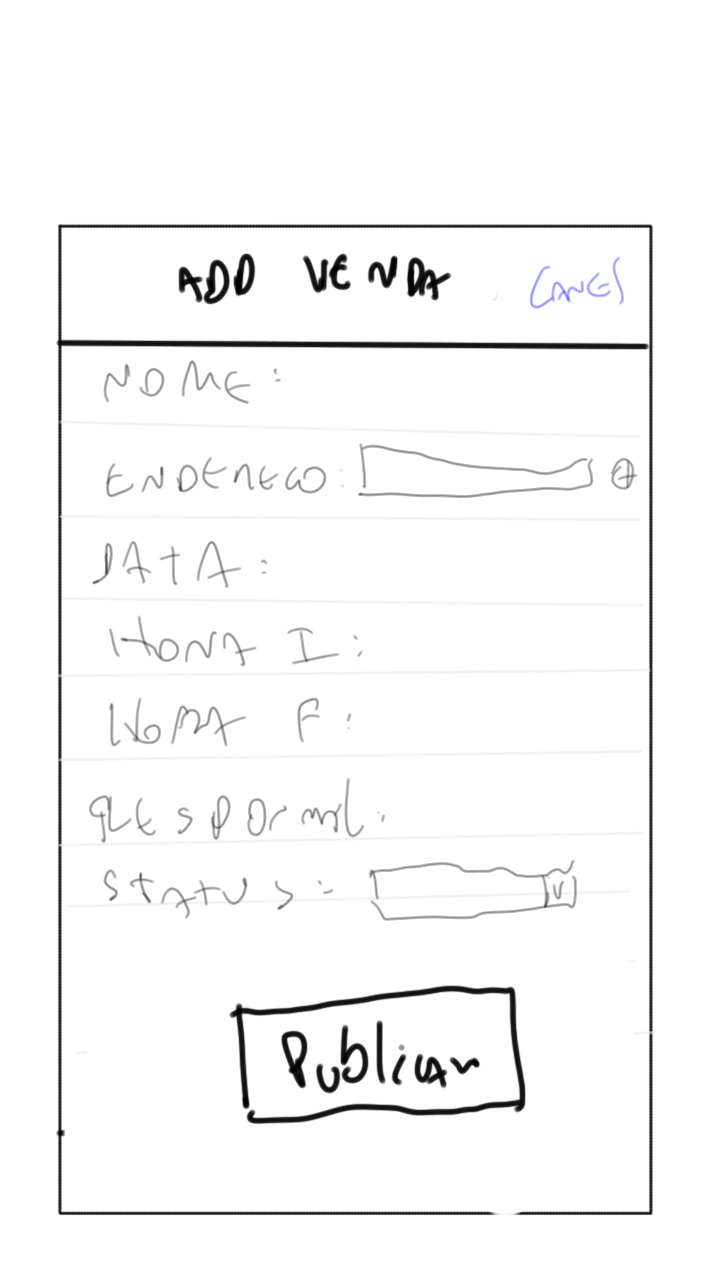 ADD VENDA CANCEL
NOME:
ENDEREÇO:
DATA:
HORA I:
HORA F:
STATUS: V
Publicar